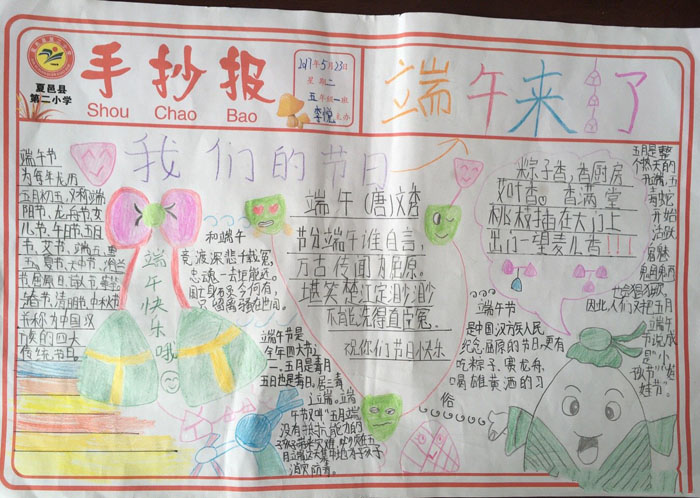 夏邑县
第二小学
手抄报
Shou Chao Bao
2017年5月23日
星期二
五年级一班
李悦主办
端午来了
我们的节日
端午节
为每年农历
五月初五，又称端
阳节、龙舟节、女
儿节、午日节、五日
节、艾节、端五、重
五、夏节、
春节、清明节、中秋节
并称为中国汉
族的四大
传统节日。
端午快乐哦
和端午
竞渡深悲千载冤，
忠魂一去讵能还。
国亡身殒今何有，
只留离骚在世间。
端午(唐)文秀
节分端午谁自言，
万古传闻为屈原。
堪笑楚江空渺渺
不能洗得直臣冤。
祝你们节日快乐
粽子香，香厨房
艾叶香。香满堂
桃枝插在大门上
出门一望麦儿香!!!
五月是整
个热天的
开端，五
青蛇
开始
活跃
鬼魅
也会猖狂
因此，人们又才把五月
端午
节说成
是“小
孩节”“娃
娃节”。
端午节
是中国汉族人民
纪念屈原的节日，更有
吃粽子、赛龙舟、
喝雄黄酒的习
俗
端午节是
每年四大节之
一，五月是青月
五日也是青日。居三青
之端。端
午节又叫“五月端
没有抵抗能力的
消灾防毒。